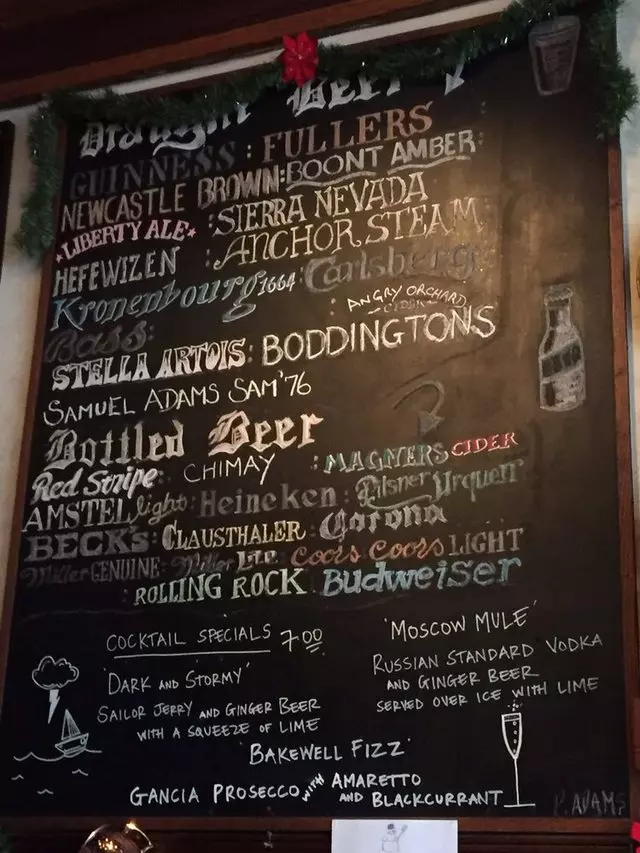 Draught Beer
GUINNESS : FULLERS
NEWCASTLE BROWN : BOONT AMBER
*LIBERTY ALE* : SIERRA NEVADA
HEFEWIZEN : ANCHOR STEAM
Kronenbourg 1664 Carlsberg
Bass : ANGRY ORCHARD CIDER
STELLA ARTOIS : BODDINGTONS
SAMUEL ADAMS SAM '76
Bottled Beer
Red Stripe : CHIMAY : MAGNERS CIDER
AMSTEL light : Heineken : Pilsner Urquell
BECK'S : CLAUSTHALER Corona
Miller GENUINE : Miller Lite Coors Coors LIGHT
: ROLLING ROCK Budweiser
COCKTAIL SPECIALS 7.00
'DARK AND STORMY'
SAILOR JERRY AND GINGER BEER
WITH A SQUEEZE OF LIME
'MOSCOW MULE'
RUSSIAN STANDARD VODKA
AND GINGER BEER
SERVED OVER ICE WITH LIME
'BAKEWELL FIZZ'
GANCIA PROSECCO WITH AMARETTO
AND BLACKCURRANT
P. ADAMS